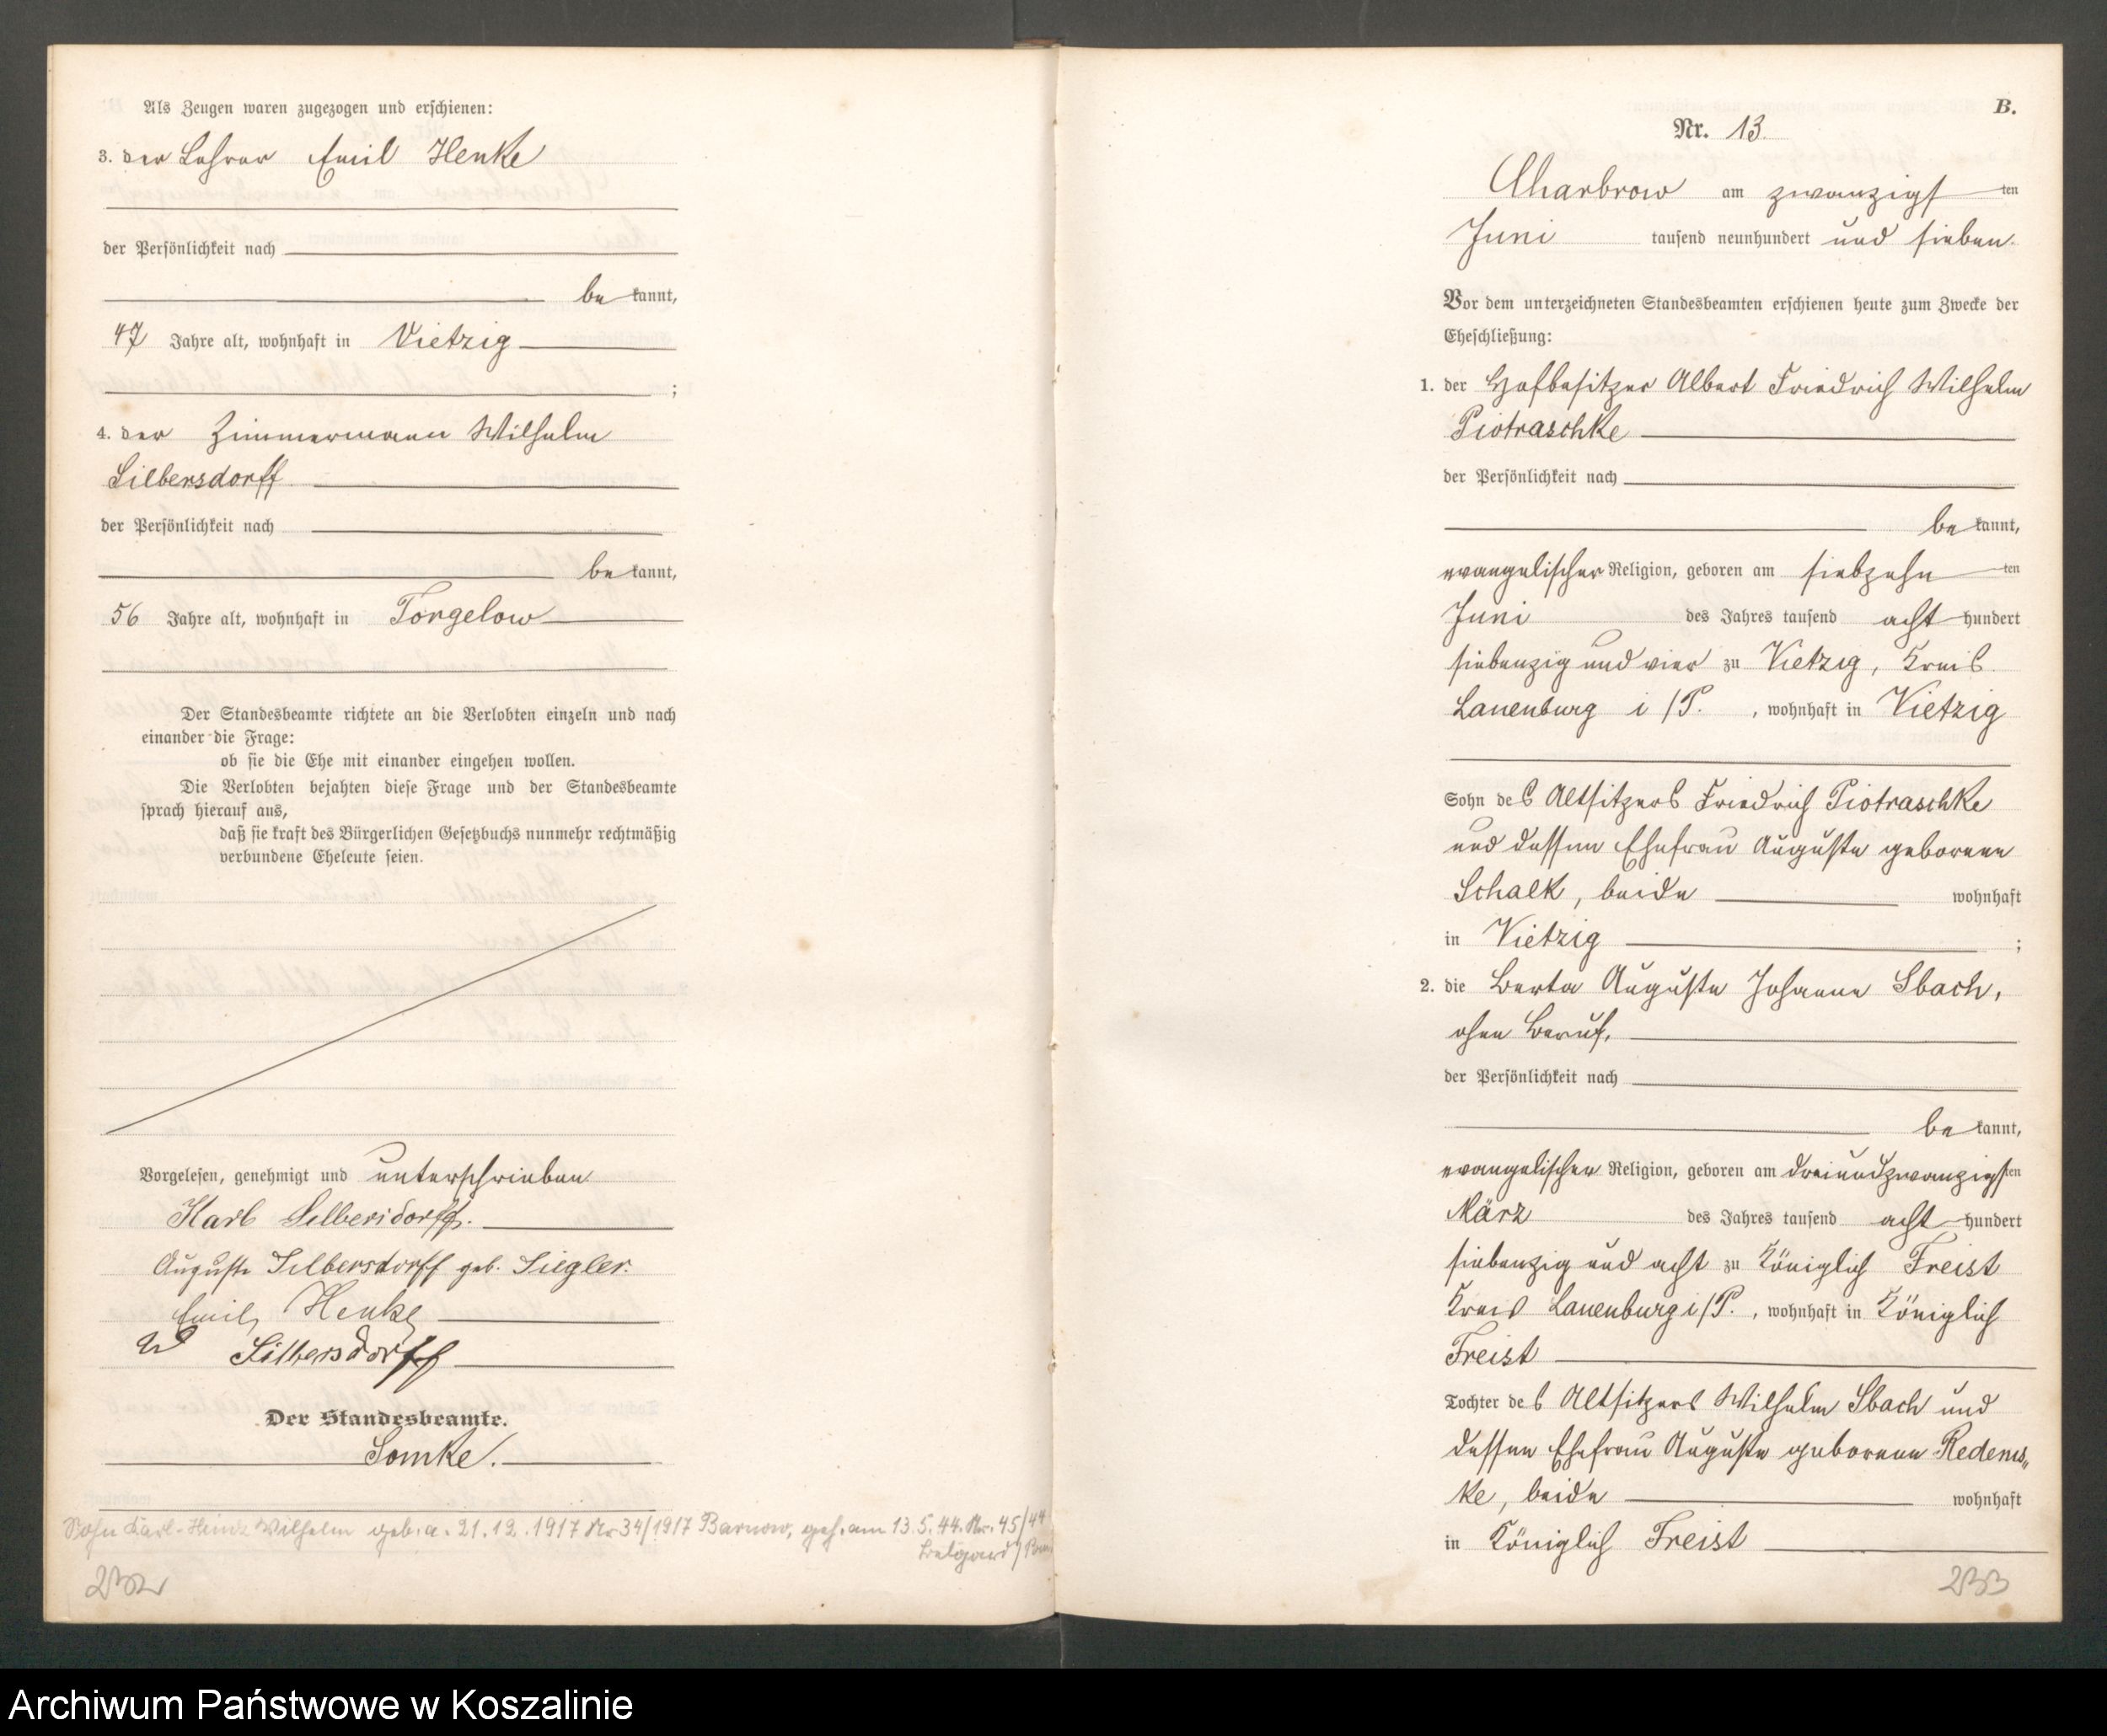 Als Zeugen waren zugezogen und erschienen:
3. der Lehrer Emil Henke
der Persönlichkeit nach
be kannt,
47 Jahre alt, wohnhaft in Vietzig
;
4. der Zimmermann Wilhelm
Silbersdorff
der Persönlichkeit nach
be kannt,
56 Jahre alt, wohnhaft in Torgelow
Der Standesbeamte richtete an die Verlobten einzeln und nach
einander die Frage:
ob sie die Ehe mit einander eingehen wollen.
Die Verlobten bejahten diese Frage und der Standesbeamte
sprach hierauf aus,
daß sie kraft des Bürgerlichen Gesetzbuchs nunmehr rechtmäßig
verbundene Eheleute seien.
Vorgelesen, genehmigt und unterschrieben
Karl Silbersdorff.
Auguste Silbersdorff geb. Siegler.
Emil Henke
W Silbersdorff
Der Standesbeamte.
Somke.
Sohn Karl-Heinz Wilhelm geb. a. 21.12.1917 Nr 34/1917 Barnow, geh. am 13.5.44. Nr. 45/44
Belgard/Pom
232
B.
Nr. 13.
Charbrow am zwanzigst ten
Juni tausend neunhundert und sieben.
Vor dem unterzeichneten Standesbeamten erschienen heute zum Zwecke der
Eheschließung:
1. der Hofbesitzer Albert Friedrich Wilhelm
Piotraschke
der Persönlichkeit nach
be kannt,
evangelischer Religion, geboren am siebzehn ten
Juni des Jahres tausend acht hundert
siebenzig und vier zu Vietzig, Kreis
Lauenburg i/P. , wohnhaft in Vietzig
Sohn des Altsitzers Friedrich Piotraschke
und dessen Ehefrau Auguste geborene
Schalk, beide wohnhaft
in Vietzig ;
2. die Berta Auguste Johanne Sbach,
ohne Beruf,
der Persönlichkeit nach
be kannt,
evangelischer Religion, geboren am dreiundzwanzigsten
März des Jahres tausend acht hundert
siebenzig und acht zu Königlich Freist
Kreis Lauenburg i/P. , wohnhaft in Königlich
Freist
Tochter des Altsitzers Wilhelm Sbach und
dessen Ehefrau Auguste geborene Redems„
ke, beide wohnhaft
in Königlich Freist
233
Archiwum Państwowe w Koszalinie